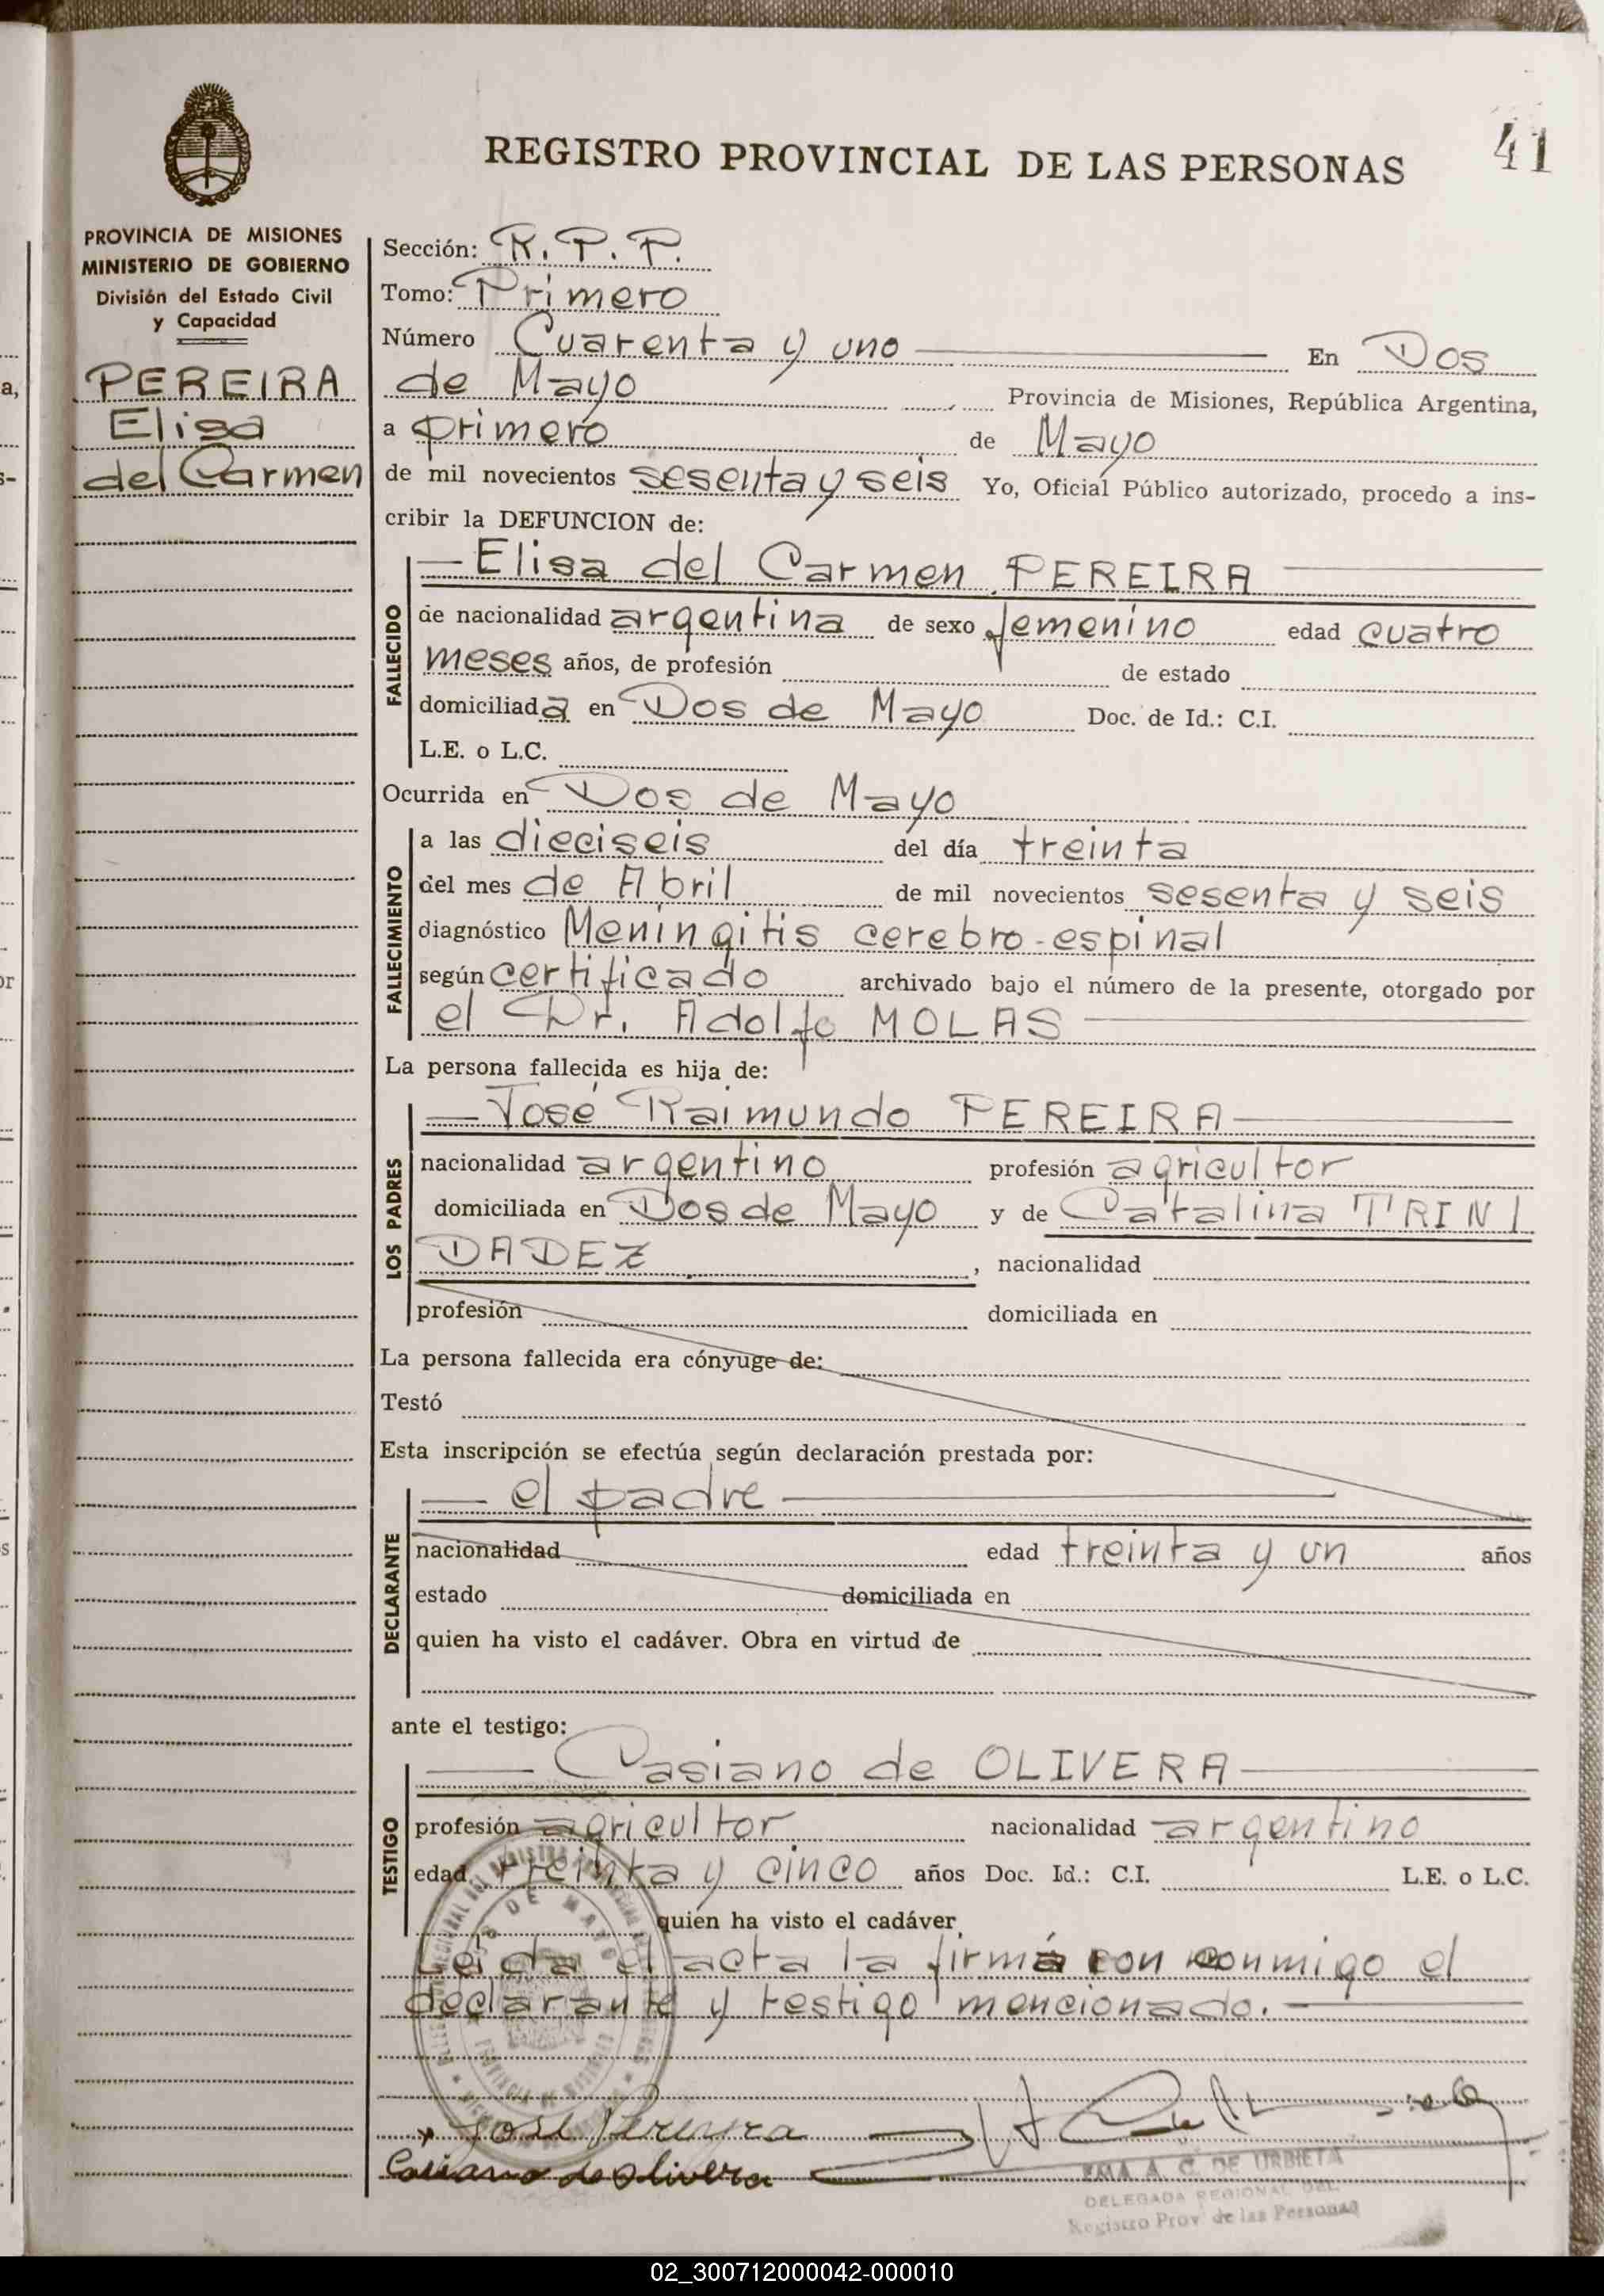 41
REGISTRO PROVINCIAL DE LAS PERSONAS
PROVINCIA DE MISIONES
MINISTERIO DE GOBIERNO
División del Estado Civil
y Capacidad
PEREIRA
Elisa
del Carmen
Sección: R. P. P.
Tomo: Primero
Número Cuarenta y uno En Dos
de Mayo Provincia de Misiones, República Argentina,
a primero de Mayo
de mil novecientos sesenta y seis Yo, Oficial Público autorizado, procedo a ins-
cribir la DEFUNCION de:
Elisa del Carmen PEREIRA
FALLECIDO
de nacionalidad argentina de sexo femenino edad cuatro
meses años, de profesión de estado
domiciliada en Dos de Mayo Doc. de Id.: C.I.
L.E. o L.C.
Ocurrida en Dos de Mayo
FALLECIMIENTO
a las dieciseis del día treinta
del mes de Abril de mil novecientos sesenta y seis
diagnóstico Meningitis cerebro-espinal
según certificado archivado bajo el número de la presente, otorgado por
el Dr. Adolfo MOLAS
La persona fallecida es hija de:
José Raimundo PEREIRA
LOS PADRES
nacionalidad argentino profesión agricultor
domiciliada en Dos de Mayo y de Catalina TRINI
DADEZ, nacionalidad
profesión domiciliada en
La persona fallecida era cónyuge de:
Testó
Esta inscripción se efectúa según declaración prestada por:
el padre
DECLARANTE
nacionalidad edad treinta y un años
estado domiciliada en
quien ha visto el cadáver. Obra en virtud de
ante el testigo:
Casiano de OLIVERA
TESTIGO
profesión agricultor nacionalidad argentino
edad treinta y cinco años Doc. Id.: C.I. L.E. o L.C.
quien ha visto el cadáver
Leída el acta la firma con conmigo el
declarante y testigo mencionado.
José Pereyra
Casiano de Olivera
EMA A. C. DE URBIETA
DELEGADA REGIONAL DEL
Registro Prov. de las Personas
02_300712000042-000010